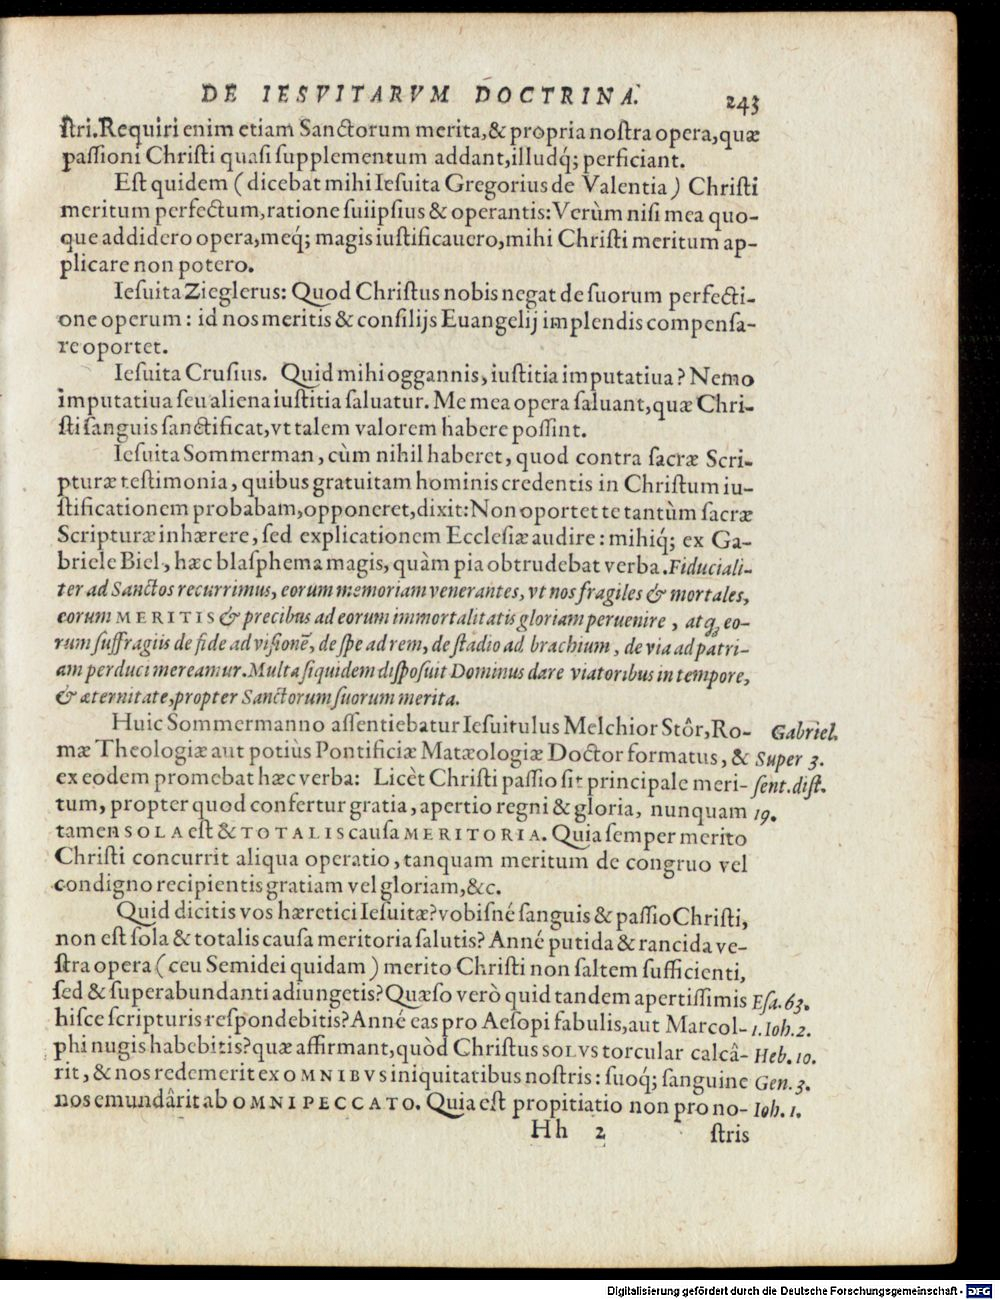 DE IESVITARVM DOCTRINA. 243
ſtri. Requiri enim etiam Sanctorum merita, & propria noſtra opera, quæ
paſſioni Chriſti quaſi ſupplementum addant, illudq́; perficiant.
Eſt quidem (dicebat mihi Ieſuita Gregorius de Valentia) Chriſti
meritum perfectum, ratione ſui ipſius & operantis: Verùm niſi mea quo-
que addidero opera, meq́; magis iuſtificauero, mihi Chriſti meritum ap-
plicare non potero.
Ieſuita Zieglerus: Quod Chriſtus nobis negat de ſuorum perfecti-
one operum: id nos meritis & conſilijs Euangelij implendis compenſa-
re oportet.
Ieſuita Cruſius. Quid mihi oggannis, iuſtitia imputatiua? Nemo
imputatiua ſeu aliena iuſtitia ſaluatur. Me mea opera ſaluant, quæ Chri-
ſti ſanguis ſanctificat, vt talem valorem habere poſſint.
Ieſuita Sommerman, cùm nihil haberet, quod contra ſacræ Scri-
pturæ teſtimonia, quibus gratuitam hominis credentis in Chriſtum iu-
ſtificationem probabam, opponeret, dixit: Non oportet te tantùm ſacræ
Scripturæ inhærere, ſed explicationem Eccleſiæ audire: mihiq́; ex Ga-
briele Biel, hæc blaſphema magis, quàm pia obtrudebat verba. Fiduciali-
ter ad Sanctos recurrimus, eorum memoriam venerantes, vt nos fragiles & mortales,
eorum MERITIS & precibus ad eorum immortalitatis gloriam peruenire, atq; eo-
rum ſuffragiis de fide ad viſionē, de ſpe ad rem, de ſtadio ad brachium, de via ad patri-
am perduci mereamur. Multa ſiquidem diſpoſuit Dominus dare viatoribus in tempore,
& æternitate, propter Sanctorum ſuorum merita.
Huic Sommermanno aſſentiebatur Ieſuitulus Melchior Stôr, Ro- Gabriel.
mæ Theologiæ aut potiùs Pontificiæ Matæologiæ Doctor formatus, & Super 3.
ex eodem promebat hæc verba: Licèt Chriſti paſſio ſit principale meri- ſent. diſt.
tum, propter quod confertur gratia, apertio regni & gloria, nunquam 19.
tamen SOLA eſt & TOTALIS cauſa MERITORIA. Quia ſemper merito
Chriſti concurrit aliqua operatio, tanquam meritum de congruo vel
condigno recipientis gratiam vel gloriam, &c.
Quid dicitis vos hæretici Ieſuitæ? vobiſné ſanguis & paſſio Chriſti,
non eſt ſola & totalis cauſa meritoria ſalutis? Anné putida & rancida ve-
ſtra opera (ceu Semidei quidam) merito Chriſti non ſaltem ſufficienti,
ſed & ſuperabundanti adiungetis? Quæſo verò quid tandem apertiſſimis Eſa. 63.
hiſce ſcripturis reſpondebitis? Anné eas pro Aeſopi fabulis, aut Marcol- 1. Ioh. 2.
phi nugis habebitis? quæ affirmant, quòd Chriſtus SOLVS torcular calcâ- Heb. 10.
rit, & nos redemerit ex OMNIBVS iniquitatibus noſtris: ſuoq́; ſanguine Gen. 3.
nos emundârit ab OMNI PECCATO. Quia eſt propitiatio non pro no- Ioh. 1.
Hh 2 ſtris
Digitalisierung gefördert durch die Deutsche Forschungsgemeinschaft - DFG